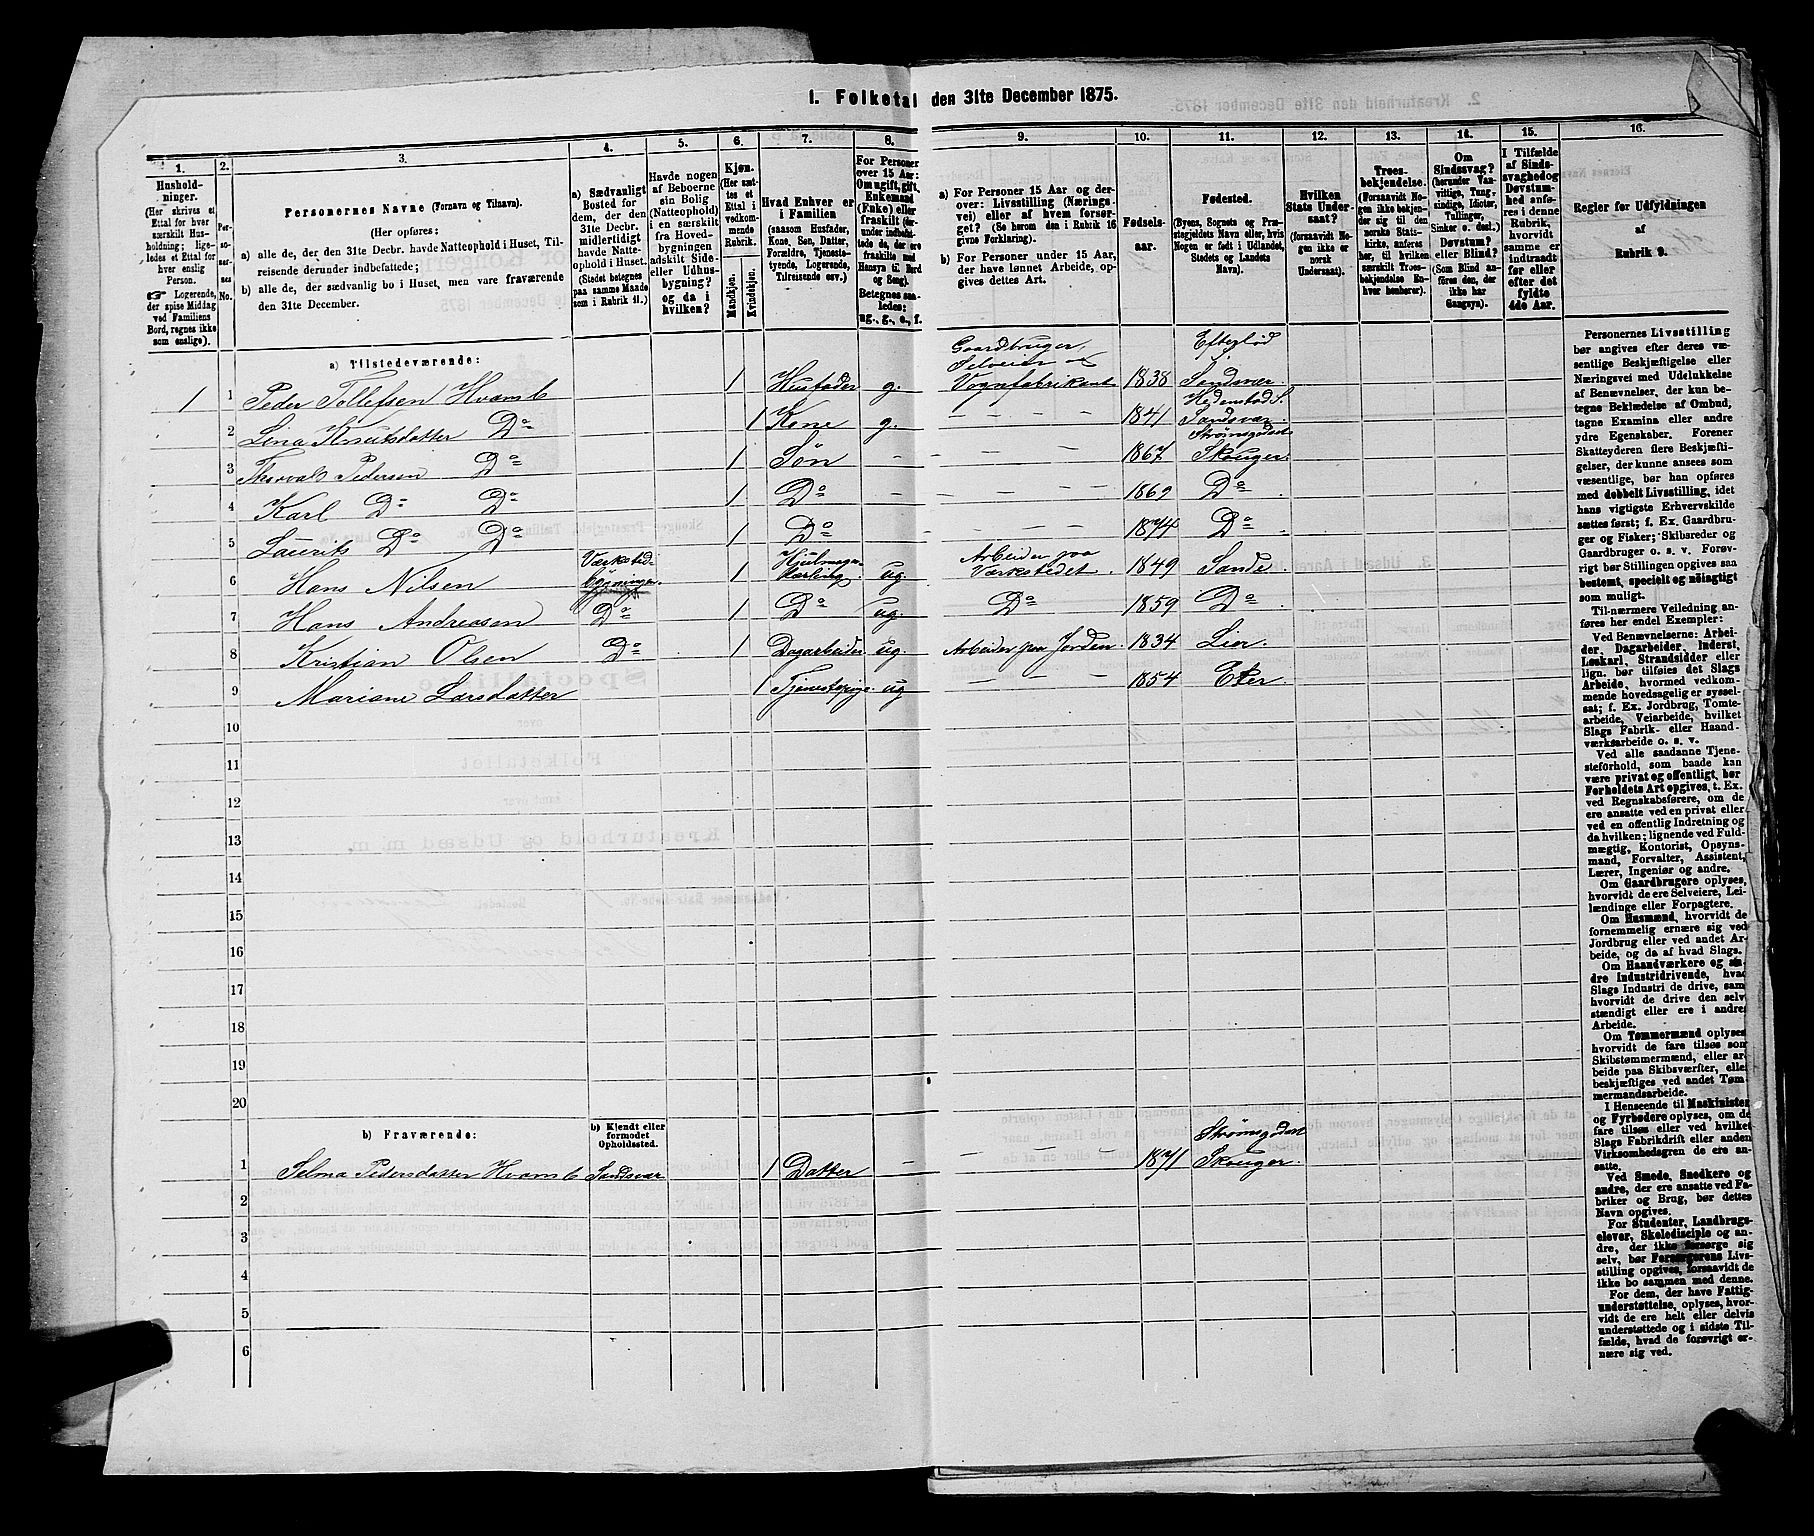 1. Folketal den 31te December 1875.
1. 2. 3. 4. 5. 6. 7. 8. 9. 10. 11. 12. 13. 14. 15. 16.
Hushold-
ninger.
(Her skrives et
Ettal for hver
særskilt Hus-
holdning; lige-
ledes et Ettal for
hver enslig
Person.
☞ Logerende,
der spise Middag
ved Familiens
Bord, regnes ikke
som enslige).
Per-
so-
ner-
nes
No.
Personernes Navne (Fornavn og Tilnavn).
(Her opføres:
a) alle de, der den 31te Decbr. havde Natteophold i Huset, Til-
reisende derunder indbefattede;
b) alle de, der sædvanlig bo i Huset, men vare fraværende
den 31te December.
a) Sædvanligt
Bosted for
dem, der den
31te Decbr.
midlertidigt
havde Natte-
ophold i Huset.
(Stedet betegnes
paa samme Maade
som i Rubrik 11.)
Havde nogen
af Beboerne
sin Bolig
(Natteophold)
i en særskilt
fra Hoved-
bygningen
adskilt Side-
eller Udhus-
bygning?
og da i
hvilken?
Kjøn.
(Her sæt-
tes et
Ettal i
vedkom-
mende
Rubrik.
Mandkjøn.
Kvindekjøn.
Hvad Enhver er
i Familien
(saasom Husfader,
Kone, Søn, Datter,
Forældre, Tjeneste-
tyende, Logerende,
Tilreisende osv.)
For Personer
over 15 Aar:
Om ugift, gift,
Enkemand
(Enke) eller
fraskilt (for-
Betegnes saa-
ledes:
ug., g., e., f.
a) For Personer 15 Aar og der-
over: Livsstilling (Nærings-
vei) eller af hvem forsør-
get? (Se herom den i Rubrik 16
givne Forklaring).
b) For Personer under 15 Aar,
der have lønnet Arbeide, op-
gives dettes Art.
Fødsels-
aar.
Fødested.
(Byens, Sognets og Præ-
stegjeldets Navn eller, hvis
Nogen er født i Udlandet,
Stedets og Landets
Navn).
Hvilken
Stats Under-
saat?
(forsaavidt No-
gen ikke er
norsk
Undersaat).
Troes-
bekjendelse.
(Forsaavidt No-
gen ikke bekjen-
der sig til den
norske Stats-
kirke, anføres
her, til hvilken
særskilt Troes-
bekjendelse En-
hver henhører).
Om
Sindssvag?
(herunder Van-
vittige, Tung-
sindige, Idioter,
Tullinger,
Sinker o. desl.)
Døvstum?
eller Blind?
(Som Blind an-
føres den, der
ikke har
Gangsyn).
I Tilfælde
af Sinds-
svaghed og
Døvstum-
hed anfø-
res i denne
Rubrik,
hvorvidt
samme er
indtraadt
før eller
efter det
fyldte
4de Aar.
Regler for Udfyldningen
af
Rubrik 9.
a) Tilstedeværende:
1 1 Peder Tollefsen Hvamb 1 Husfader g. Gaardbruger, Selveier og Vognfabrikant 1838 Efteløt Sandsvær
2 Lina Knutsdatter Do 1 Kone g. – – – – 1841 Hedenstad S. Sandsvær.
3 Thorvald Pedersen Do 1 Søn – – – – – 1867 Strømsgodset Skouger.
4 Karl Do Do 1 Do – – – – – 1869 Do
5 Laurits Do Do 1 Do 1874 Do
6 Hans Nilsen Værkstedbygningen 1 ug. Arbeider paa Værkstedet. 1849 Sande
7 Hans Andreasen Do 1 Do ug. Do 1859 Do
8 Kristian Olsen Do 1 Dagarbeider ug Arbeider paa Jorden. 1834 Lier.
9 Mariane Larsdatter 1 Tjenestepige. ug – – – – 1854 Eker.
10
11
12
13
14
15
16
17
18
19
20
b) Fraværende:
b) Kjendt eller
formodet
Opholdssted.
1 Selma Pedersdatter Hvamb Sandsvær 1 Datter – – – 1871 Strømsgodset Skouger.
2
3
4
5
6
Personernes Livsstilling
bør angives efter deres væ-
sentlige Beskjæftigelse eller
Næringsvei med Udelukkelse
af Benævnelser, der kun be-
tegne Beklædelse af Ombud,
tagne Examina eller andre
ydre Egenskaber. Forener
Skatteyderen flere Beskjæfti-
gelser, der kunne ansees som
væsentlige, bør han opføres
med dobbelt Livsstilling, idet
hans vigtigste Erhvervskilde
sættes først; f. Ex. Gaardbru-
ger og Fisker; Skibsreder og
Gaardbruger o. s. v. Forøv-
rigt bør Stillingen opgives saa
bestemt, specielt og nøiagtigt
som muligt.
Til nærmere Veiledning an-
føres her endel Exempler:
Ved Benævnelserne: Arbei-
der, Dagarbeider, Inderst,
Løskarl, Strandsidder eller
lign. bør tilføies det Slags
Arbeide, hvormed vedkom-
mende hovedsagelig er syssel-
sat; f. Ex. Jordbrug, Tomte-
arbeide, Veiarbeide, hvilket
Slags Fabrik- eller Haand-
værksarbeide o. s. v.
Ved alle saadanne Tjene-
steforhold, som baade kan
være privat og offentligt, bør
Forholdets Art opgives, t. Ex.
ved Regnskabsførere, om de
ere ansatte ved en privat eller
ved en offentlig Indretning og
da hvilken; lignende ved Fuld-
mægtig, Kontorist, Opsyns-
mand, Forvalter, Assistent,
Lærer, Ingeniør og andre.
Om Gaardbrugere oplyses,
hvorvidt de ere Selveiere, Lei-
lændinge eller Forpagtere.
Om Husmænd, hvorvidt de
fornemmelig ernære sig ved
Jordbrug eller ved andet Ar-
beide, og da af hvad Slags.
Om Haandværkere og an-
dre Industridrivende, hvad
Slags Industri de drive, samt
hvorvidt de drive den selv-
stændigt eller ere i andres
Arbeide.
Om Tømmermænd oplyses
hvorvidt de fare tilsøs som
Skibstømmermænd, eller ar-
beide paa Skibsværfter, eller
beskjæftiges ved andet Tøm-
mermandsarbeide.
I Henseende til Maskinister
og Fyrbødere oplyses, om de
fare tilsøs eller ved hvilket
Slags Fabrikdrift eller anden
Virksomhedsgren de ere an-
satte.
Ved Smede, Snedkere og
andre, der ere ansatte ved Fa-
briker og Brug, bør dettes
Navn opgives.
For Studenter, Landbrugs-
elever, Skoledisciple og an-
dre, der ikke forsørge sig
selv, bør Forsørgerens Livs-
stilling opgives, forsaavidt de
ikke bo sammen med denne.
For dem, der have Fattig-
understøttelse, oplyses, hvor-
vidt de ere helt eller delvis
understøttede og i sidste Til-
fælde, hvad de forøvrigt er-
nære sig ved.